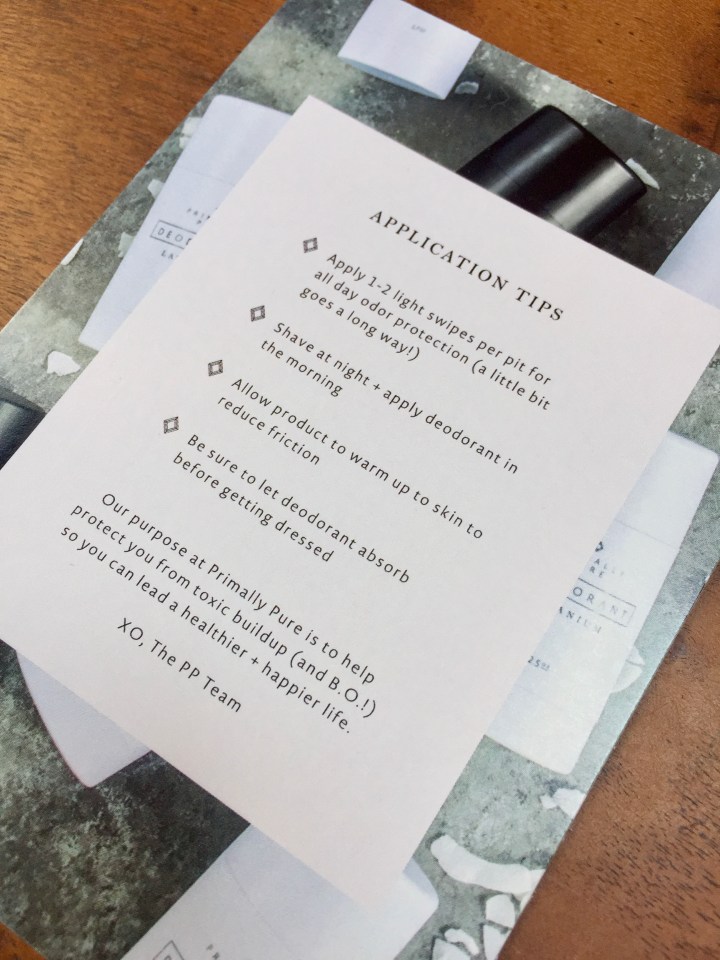 APPLICATION TIPS
Apply 1-2 light swipes per pit for
all day odor protection (a little bit
goes a long way!)
Shave at night + apply deodorant in
the morning
Allow product to warm up to skin to
reduce friction
Be sure to let deodorant absorb
before getting dressed
Our purpose at Primally Pure is to help
protect you from toxic buildup (and B.O.!)
so you can lead a healthier + happier life.
XO, The PP Team